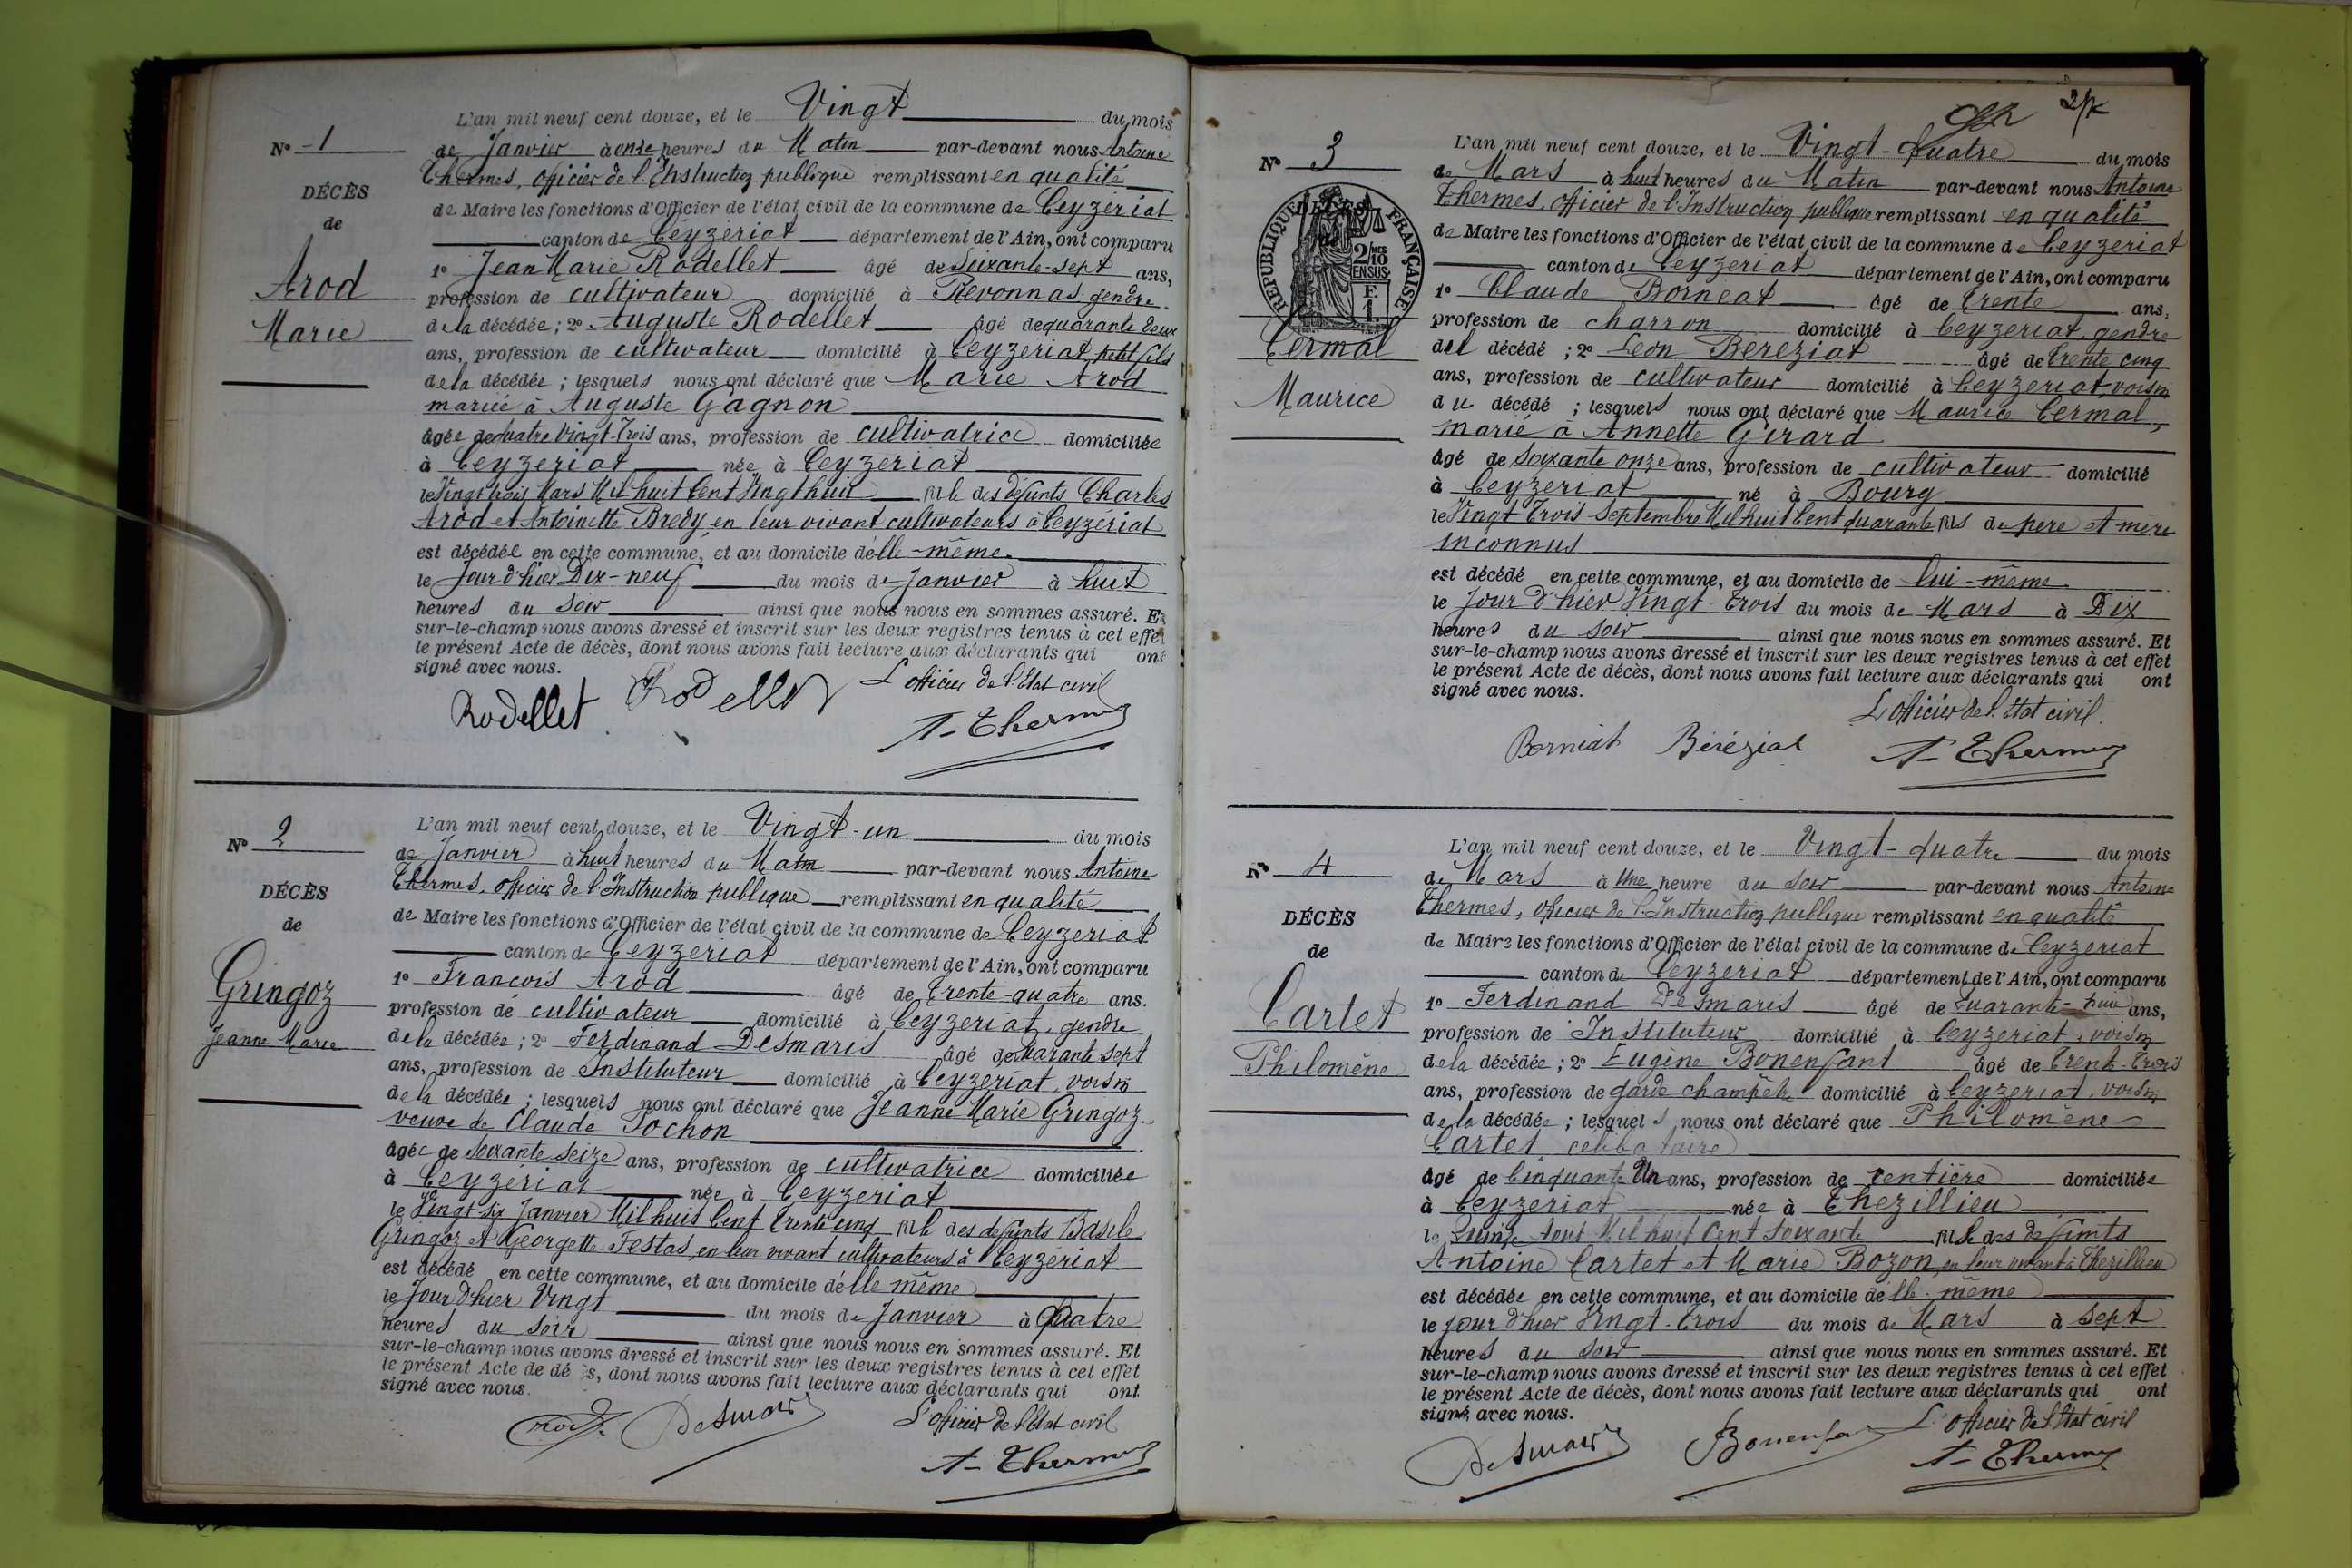 N° 1
DÉCÈS
de
Arod
Marie
L'an mil neuf cent douze, et le Vingt du mois
de Janvier à onze heures du Matin par-devant nous Antoine
Thermes, officier de l'Instruction publique remplissant en qualité
de Maire les fonctions d'Officier de l'état civil de la commune de Ceyzeriat
canton de Ceyzeriat département de l'Ain, ont comparu
1° Jean Marie Rodellet âgé de Soixante-sept ans,
profession de cultivateur domicilié à Revonnas gendre
de la décédée ; 2° Auguste Rodellet âgé de quarante deux
ans, profession de cultivateur domicilié à Ceyzeriat, petit fils
de la décédée ; lesquels nous ont déclaré que Marie Arod
mariée à Auguste Gagnon
âgée de quatre vingt-trois ans, profession de cultivatrice domiciliée
à Ceyzeriat née à Ceyzeriat
le Vingt trois Mars Mil huit Cent Vingt huit fille des défunts Charles
Arod et Antoinette Bredy, en leur vivant cultivateurs à Ceyzériat
est décédée en cette commune, et au domicile d'elle-même
le Jour d'hier Dix-neuf du mois de Janvier à huit
heures du soir ainsi que nous nous en sommes assuré. Et
sur-le-champ nous avons dressé et inscrit sur les deux registres tenus à cet effet
le présent Acte de décès, dont nous avons fait lecture aux déclarants qui ont
signé avec nous.
L'officier de l'Etat civil
Rodellet Rodellet
A- Thermes
N° 2
DÉCÈS
de
Gringoz
Jeanne Marie
L'an mil neuf cent douze, et le Vingt-un du mois
de Janvier à huit heures du Matin par-devant nous Antoine
Thermes, officier de l'Instruction publique remplissant en qualité
de Maire les fonctions d'Officier de l'état civil de la commune de Ceyzeriat
canton de Ceyzeriat département de l'Ain, ont comparu
1° Francois Arod âgé de trente-quatre ans.
profession de cultivateur domicilié à Ceyzeriat, gendre
de la décédée ; 2° Ferdinand Desmaris âgé de quarante sept
ans, profession de Instituteur domicilié à Ceyzériat, voisin
de la décédée ; lesquels nous ont déclaré que Jeanne Marie Gringoz
veuve de Claude Pochon
âgée de soixante seize ans, profession de cultivatrice domiciliée
à Ceyzériat née à Ceyzeriat
le Vingt-six Janvier Mil huit Cent Trente cinq fille des défunts Basile
Gringoz et Georgette Festas, en leur vivant cultivateurs à Ceyzériat
est décédé en cette commune, et au domicile d'elle même
le Jour d'hier Vingt du mois de Janvier à Quatre
heures du soir ainsi que nous nous en sommes assuré. Et
sur-le-champ nous avons dressé et inscrit sur les deux registres tenus à cet effet
le présent Acte de dé s, dont nous avons fait lecture aux déclarants qui ont
signé avec nous.
L'officier de l'Etat civil
Arod Desmaris
A- Thermes
2
N° 3
DÉCÈS
de
RÉPUBLIQUE FRANÇAISE
2/10 EN SUS
F. 1.
Cermal
Maurice
L'an mil neuf cent douze, et le Vingt-Quatre du mois
de Mars à huit heures du Matin par-devant nous Antoine
Thermes, officier de l'Instruction publique remplissant en qualité
de Maire les fonctions d'Officier de l'état civil de la commune de Ceyzeriat
canton de Ceyzeriat département de l'Ain, ont comparu
1° Claude Borneat âgé de trente ans,
profession de charron domicilié à Ceyzeriat, gendre
del décédé ; 2° Leon Bereziat âgé de trente cinq
ans, profession de cultivateur domicilié à Ceyzeriat, voisin
du décédé ; lesquels nous ont déclaré que Maurice Cermal,
marié à Annette Girard
âgé de soixante onze ans, profession de cultivateur domicilié
à Ceyzeriat né à Bourg
le Vingt Trois Septembre Mil huit Cent quarante fils de père et mère
inconnus
est décédé en cette commune, et au domicile de lui-même
le Jour d'hier Vingt-trois du mois de Mars à Dix
heures du soir ainsi que nous nous en sommes assuré. Et
sur-le-champ nous avons dressé et inscrit sur les deux registres tenus à cet effet
le présent Acte de décès, dont nous avons fait lecture aux déclarants qui ont
signé avec nous.
L'officier de l'Etat civil.
Borniat Béréziat A- Thermes
N° 4
DÉCÈS
de
Cartet
Philomène
L'an mil neuf cent douze, et le Vingt-quatre du mois
de Mars à Une heure du soir par-devant nous Antoine
Thermes, officier de l'Instruction publique remplissant en qualité
de Maire les fonctions d'Officier de l'état civil de la commune de Ceyzeriat
canton de Ceyzeriat département de l'Ain, ont comparu
1° Ferdinand Desmaris âgé de quarante-huit ans,
profession de Instituteur domicilié à Ceyzeriat, voisin
de la décédée ; 2° Eugène Bonenfant âgé de trente-trois
ans, profession de garde champêtre domicilié à Ceyzeriat, voisin
de la décédée ; lesquels nous ont déclaré que Philomène
Cartet célibataire
âgé de Cinquante Un ans, profession de rentière domiciliée
à Ceyzeriat née à Thezillieu
le Quinze Aout Mil huit Cent soixante fille des défunts
Antoine Cartet et Marie Bozon, en leur vivant à Thezillieu
est décédée en cette commune, et au domicile d'elle-même
le jour d'hier Vingt-Trois du mois de Mars à sept
heures du soir ainsi que nous nous en sommes assuré. Et
sur-le-champ nous avons dressé et inscrit sur les deux registres tenus à cet effet
le présent Acte de décès, dont nous avons fait lecture aux déclarants qui ont
signé avec nous.
L'officier de l'Etat civil
Desmaris Bonenfant A- Thermes